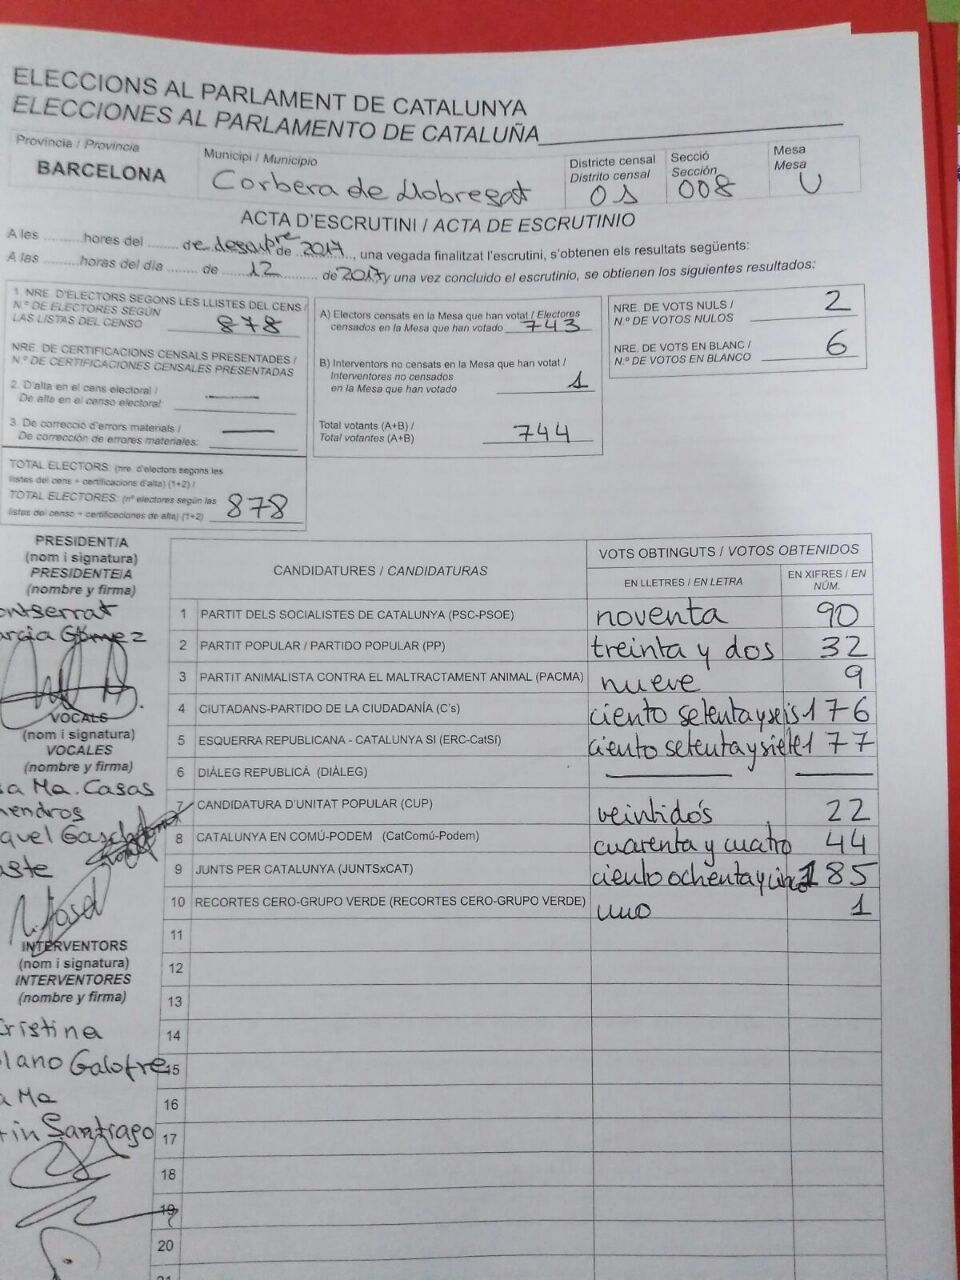 ELECCIONS AL PARLAMENT DE CATALUNYA
ELECCIONES AL PARLAMENTO DE CATALUÑA
Provincia / Provincia
BARCELONA
Municipi / Municipio
Corbera de Llobregat
Districte censal
Distrito censal
01
Secció
Sección
008
Mesa
Mesa
U
ACTA D'ESCRUTINI / ACTA DE ESCRUTINIO
A les ..........hores del ........ de desembre de 2017, una vegada finalitzat l'escrutini, s'obtenen els resultats següents:
A las ..........horas del día ........ de 12 de 2017 y una vez concluido el escrutinio, se obtienen los siguientes resultados:
1. NRE. D'ELECTORS SEGONS LES LLISTES DEL CENS /
N.º DE ELECTORES SEGÚN
LAS LISTAS DEL CENSO 878
NRE. DE CERTIFICACIONS CENSALS PRESENTADES /
N.º DE CERTIFICACIONES CENSALES PRESENTADAS
2. D'alta en el cens electoral /
De alta en el censo electoral: —
3. De correcció d'errors materials /
De corrección de errores materiales: —
TOTAL ELECTORS: (nre. d'electors segons les
llistes del cens + certificacions d'alta) (1+2) /
TOTAL ELECTORES: (nº electores según las
listas del censo + certificaciones de alta) (1+2) 878
A) Electors censats en la Mesa que han votat / Electores
censados en la Mesa que han votado 743
B) Interventors no censats en la Mesa que han votat /
Interventores no censados
en la Mesa que han votado 1
Total votants (A+B) /
Total votantes (A+B) 744
NRE. DE VOTS NULS /
N.º DE VOTOS NULOS 2
NRE. DE VOTS EN BLANC /
N.º DE VOTOS EN BLANCO 6
PRESIDENT/A
(nom i signatura)
PRESIDENTE/A
(nombre y firma)
ontserrat
arcia Gómez
VOCALS
(nom i signatura)
VOCALES
(nombre y firma)
sa Ma. Casas
mendros
quel
aste
INTERVENTORS
(nom i signatura)
INTERVENTORES
(nombre y firma)
Cristina
olano Galofre
a Ma
tin Santiago
CANDIDATURES / CANDIDATURAS
VOTS OBTINGUTS / VOTOS OBTENIDOS
EN LLETRES / EN LETRA
EN XIFRES / EN
NÚM.
1 PARTIT DELS SOCIALISTES DE CATALUNYA (PSC-PSOE) noventa 90
2 PARTIT POPULAR / PARTIDO POPULAR (PP) treinta y dos 32
3 PARTIT ANIMALISTA CONTRA EL MALTRACTAMENT ANIMAL (PACMA) nueve 9
4 CIUTADANS-PARTIDO DE LA CIUDADANÍA (C's) ciento setenta y seis 176
5 ESQUERRA REPUBLICANA - CATALUNYA SI (ERC-CatSí) ciento setenta y siete 177
6 DIÀLEG REPUBLICÀ (DIÀLEG) — —
7 CANDIDATURA D'UNITAT POPULAR (CUP) veintidós 22
8 CATALUNYA EN COMÚ-PODEM (CatComú-Podem) cuarenta y cuatro 44
9 JUNTS PER CATALUNYA (JUNTSxCAT) ciento ochenta y cinco 185
10 RECORTES CERO-GRUPO VERDE (RECORTES CERO-GRUPO VERDE) uno 1
11
12
13
14
15
16
17
18
19
20
21